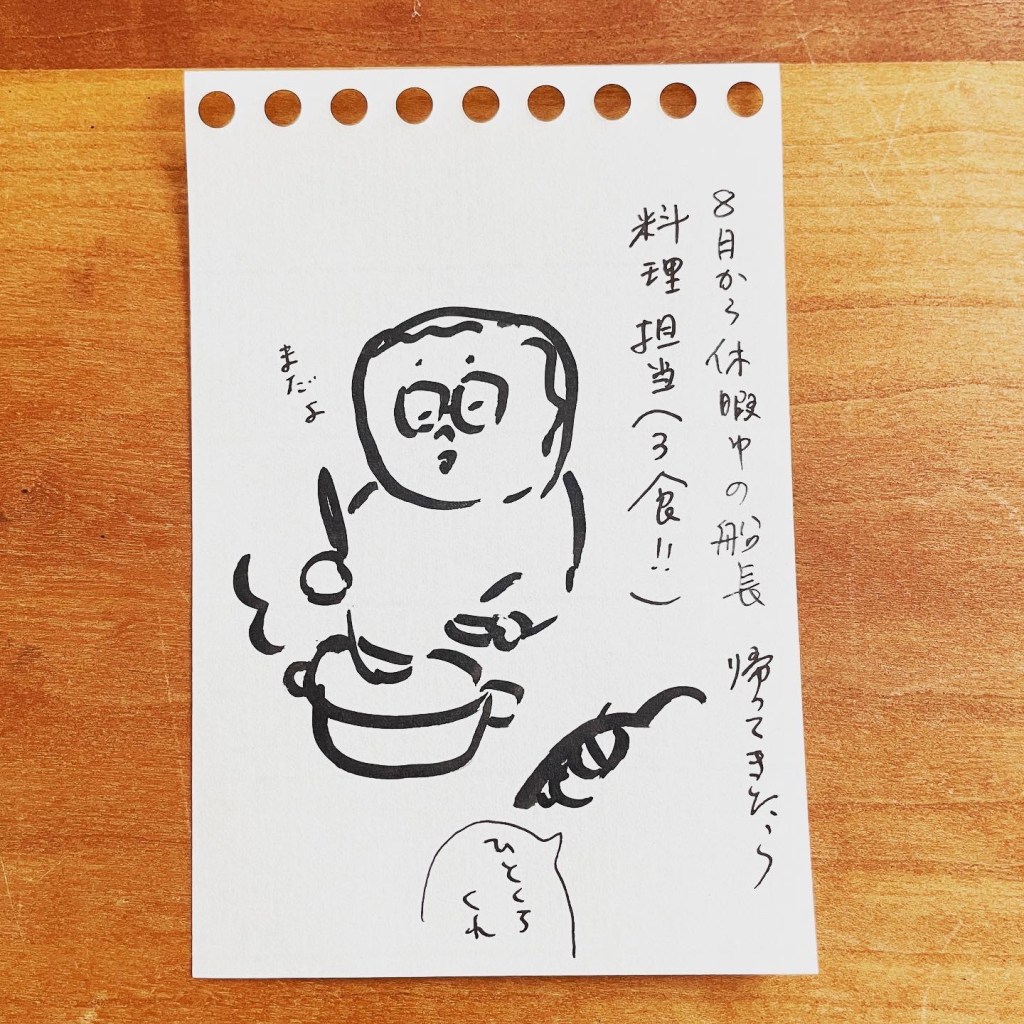 8月から休暇中の船長 帰ってきたら
料理担当(3食!!)
まだよ
ひとくち
くれ